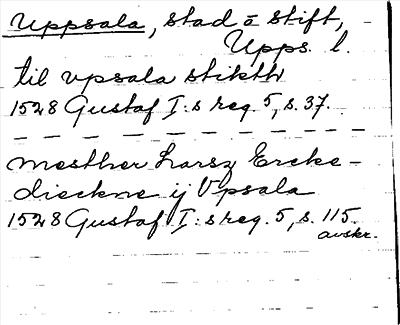 Uppsala, stad å stift,
Upps. l.
til vpsala stiktt
1528 Gustaf I:s reg. 5, s. 37.
mesther Larsz Ercke-
dieckne ij Vpsala
1528 Gustaf I:s reg. 5, s. 115.
avskr.